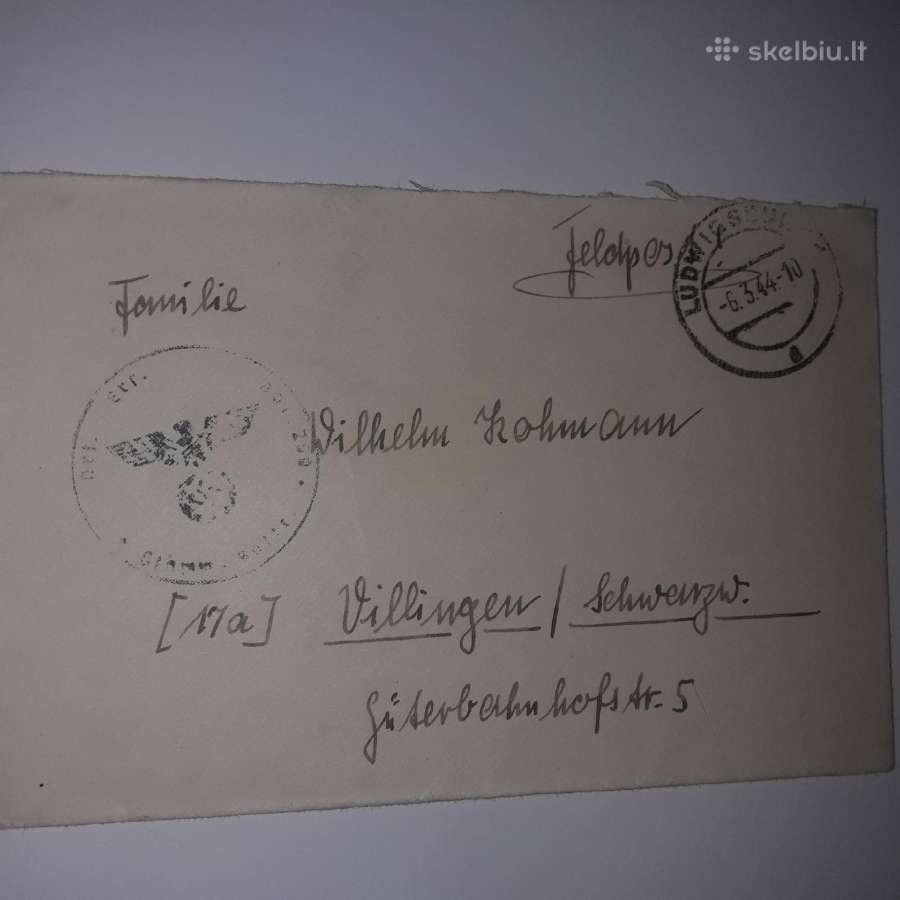 skelbiu.lt
Feldpos
LUDWIGSBU
-6.3.44-10
a
Familie
Art. Ers.
Wilhelm Kohmann
Stamm
[17a] Villingen / Schwarzw.
Güterbahnhofstr. 5